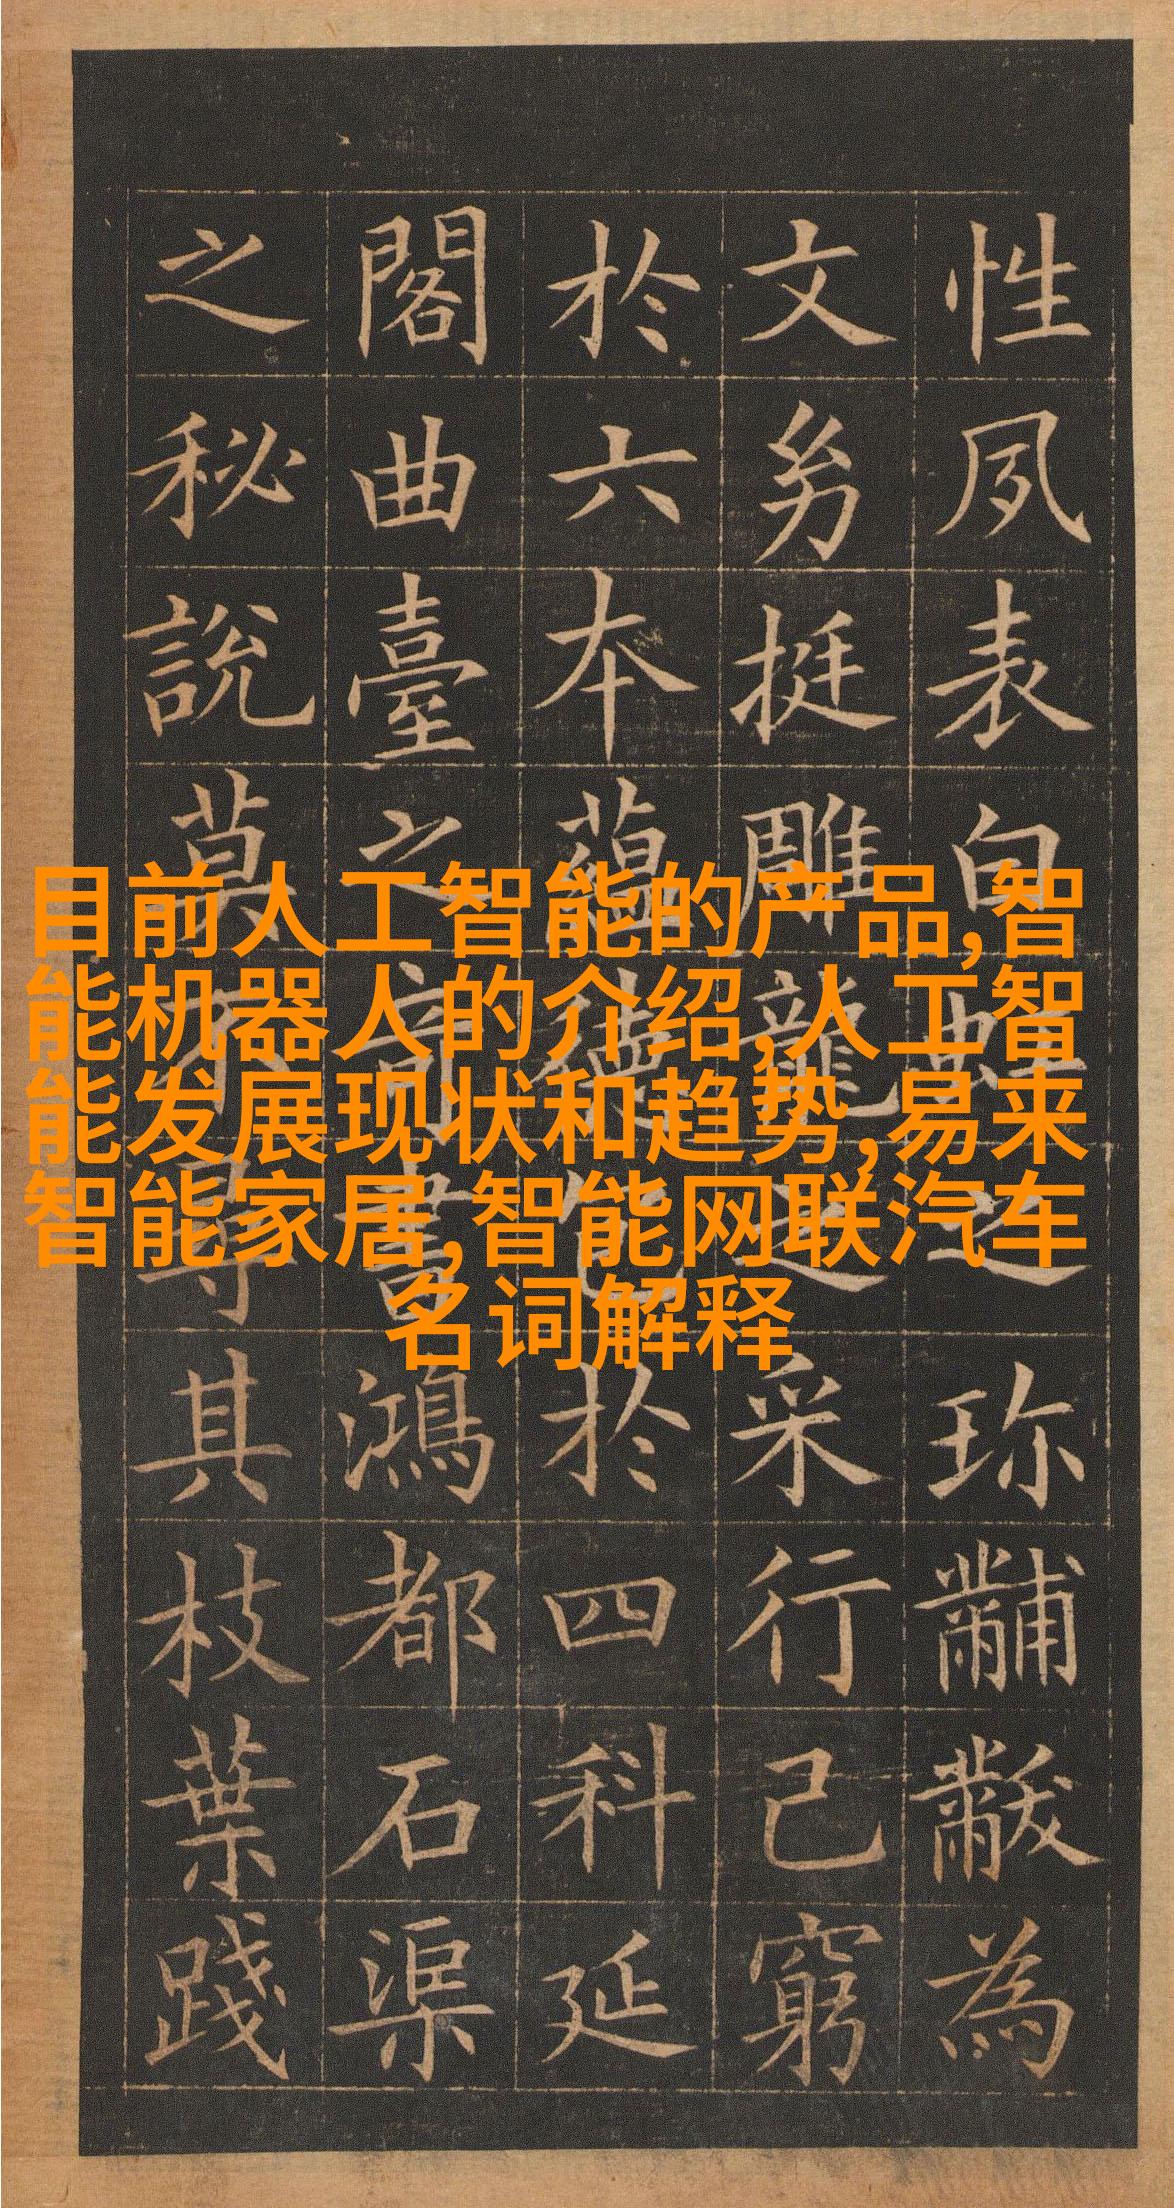 性夙表白之珍黼黻為
文挺雕龍之采行己窮
於六本蘊德於四科延
閣曲臺之奇書鴻都石渠
之秘說莫不尋其枝葉踐
目前人工智能的产品,智
能机器人的介绍,人工智
能发展现状和趋势,易来
智能家居,智能网联汽车
名词解释